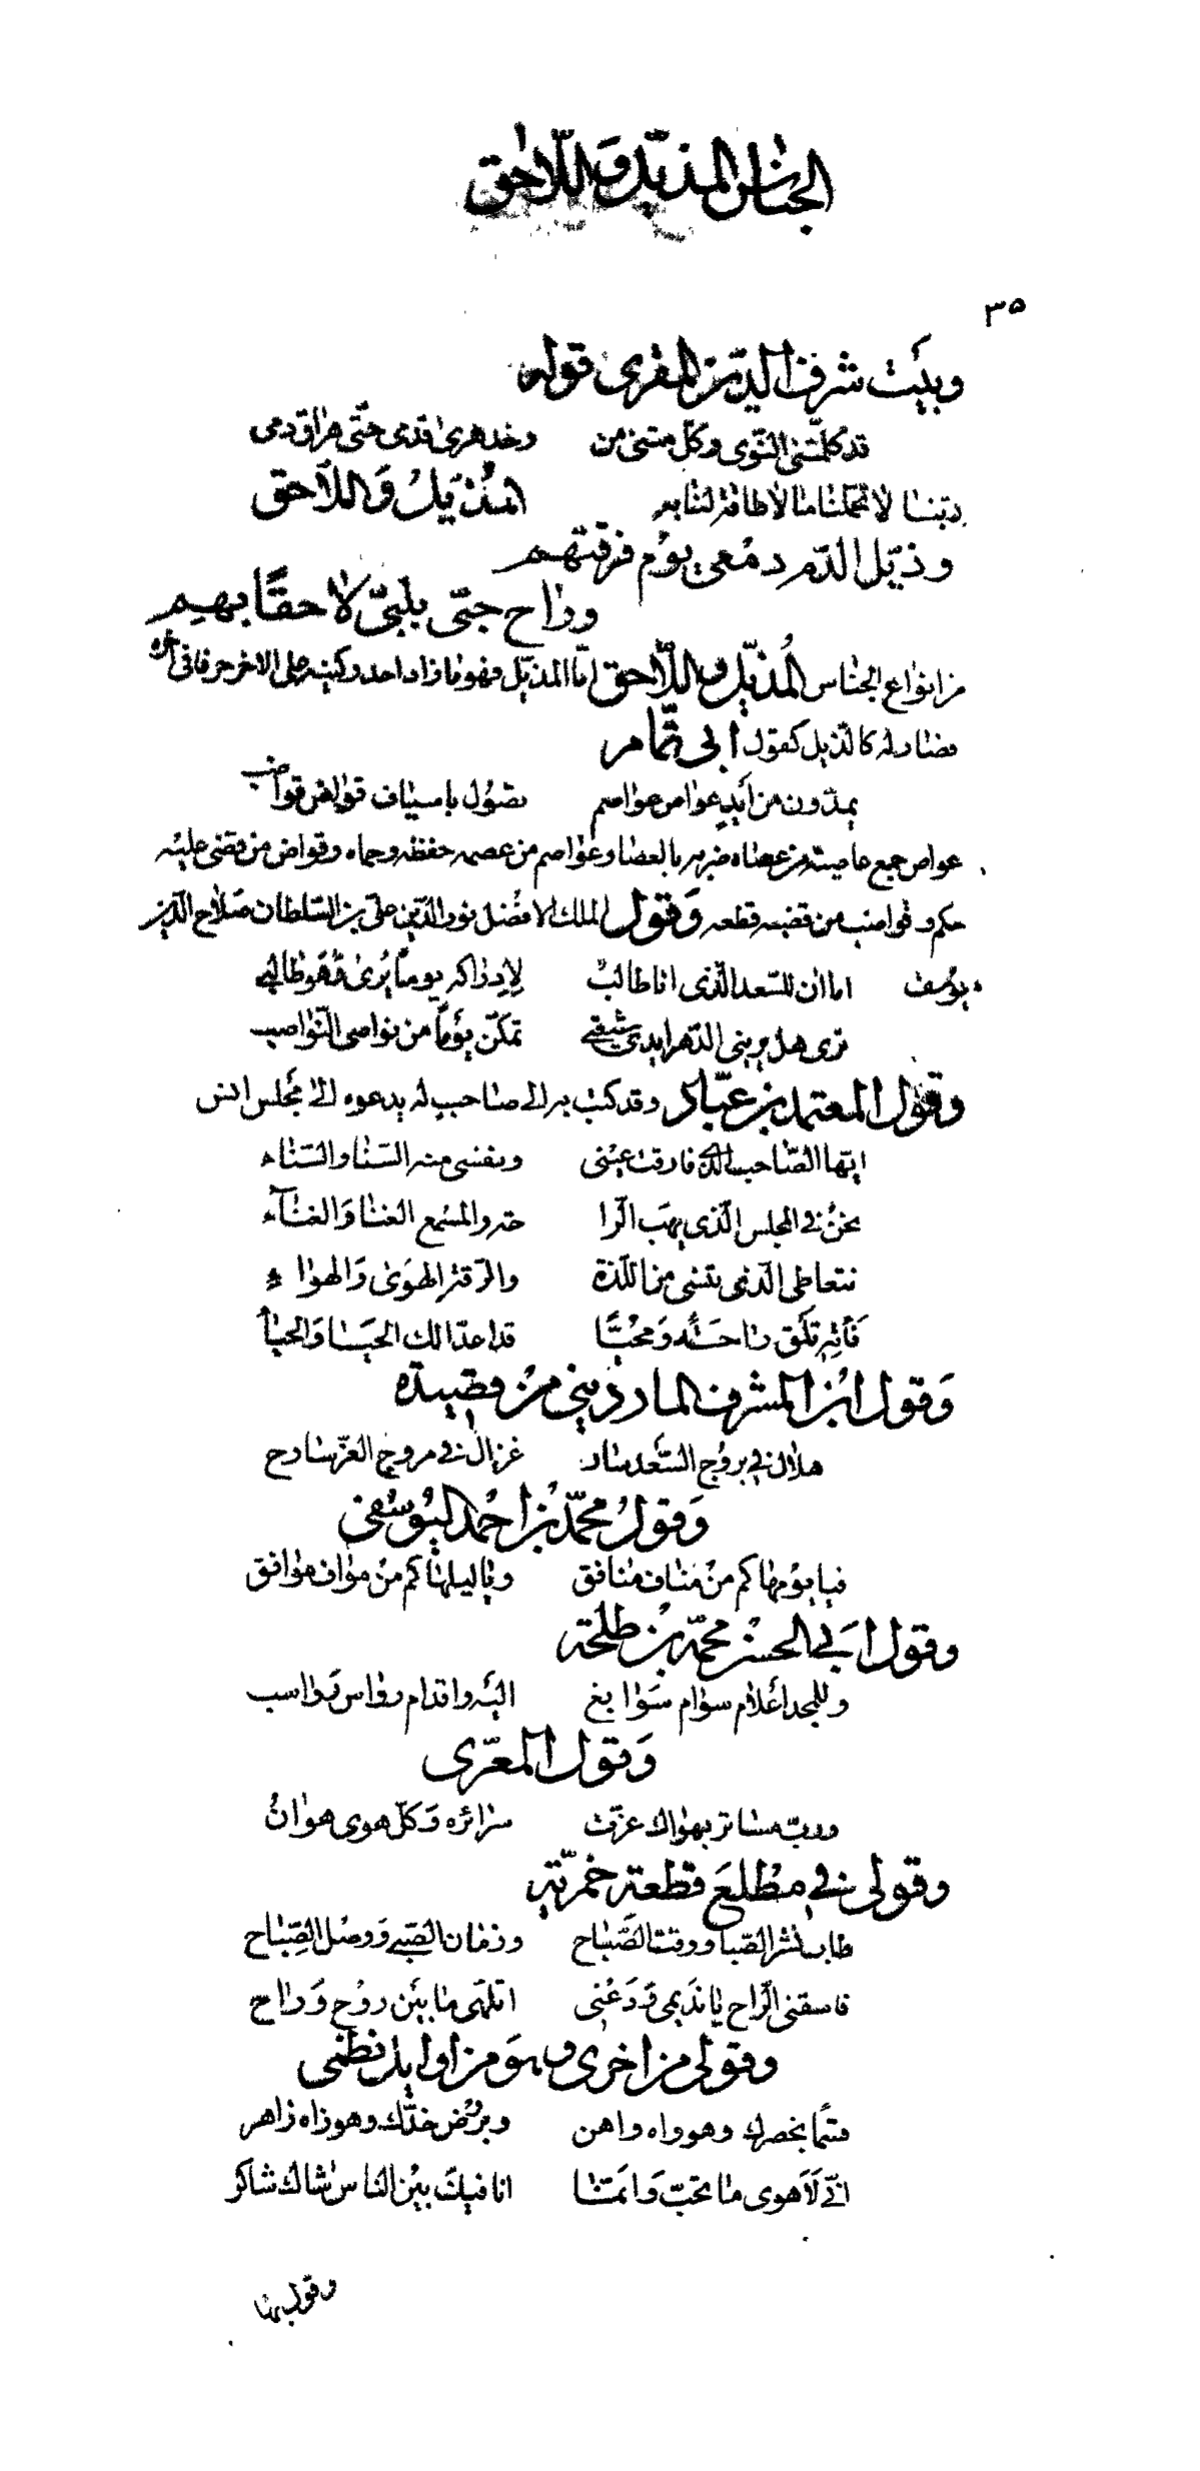 الجناس المذيّل واللّاحق
٣٥
وبيت شرف الدّين المقرى قوله
قد كلّمتنى النّوى وكلّ متنى من وخدهرى قدى حتّى هراق دمى
ربّنا لا تحمّلنا ما لا طاقة لنا به المُذيّلُ وَاللّاحق
وذيّل الدّم دمعي يوم فرقتهم
وراح حبّى بلبّى لاحقًا بهم
من انواع الجناس المُذيّل واللّاحق امّا المذيّل فهو ما زاد احد ركنيه على الاخر حرفا فى اخره
فصار له كالذّيل كقول ابى تمّام
يمدّون من أيدٍ عواص عواصم تصول باسياف قواض قواضب
عواص جمع عاصية من عصاه ضربه بالعصا وعواصم من عصمه حفظه وحماه وقواض من قضى عليه
حكم وقواضب من قضبه قطعه وَقول الملك الافضل نور الدّين علىّ بن السّلطان صلاح الدّين
يوسف اما ان للسّعد الّذى انا طالبٌ لإدراكه يوماً يُرى وَهو طالبى
ترى هل يرينى الدّهر ايدى شيعتى تمكّن يوماً من نواصى النّواصب
وقول المعتمد بن عبّاد وقد كتب به الى صاحب له يدعوه الى مجلس انس
ايّها الصّاحب الّذى فارقت عينى ونفسى منه السّنا والسّناء
نحن فى المجلس الّذى يهب الرّا حة والمسمع الغنا وَالغناء
نتعاطى الّتى تنسى من اللّذة والرّقة الهوَى وَالهواء
فَأته تلق راحة وَمحيّا قد اعدّا لك الحيا وَالحياء
وَقول ابن المشرف الماردينى من قصيدة
هلال فى بروج السّعد سار غزال فى مروج العزّ سارح
وَقول محمّد بن احمد اليوسفى
فيا يومها كم من مناف منافق ويا ليلها كم من مواف موافق
وقول ابَى الحسن محمّد بن طلحة
وللمجد أعلام سوام سَوابغ اليه واقدام رواس رَواسب
وَقول المعرّى
وربّ مساتر بهواك عزّت سرائره وَكلّ هوى هوانُ
وقولى فى مطلع قطعة خمريّة
طاب نشر الصّبا ووقت الصّباح وزمان الصّبى وَوصل الصّباح
فاسقنى الرّاح يا نديمى وَدعنى اتلهّى ما بين روح وَراح
وقولى من اخرى وهو من اوايل نظمى
قسمًا بخصرك وهو واه واهن وبروض خدّك وهو زاه زاهر
انّى لَاهوى ما تحبّ وَانّنا انا فيك بين الناس شاك شاكر
وقولى